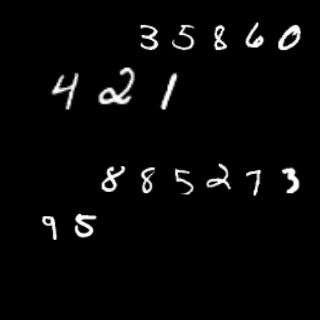 35860
421
885273
95